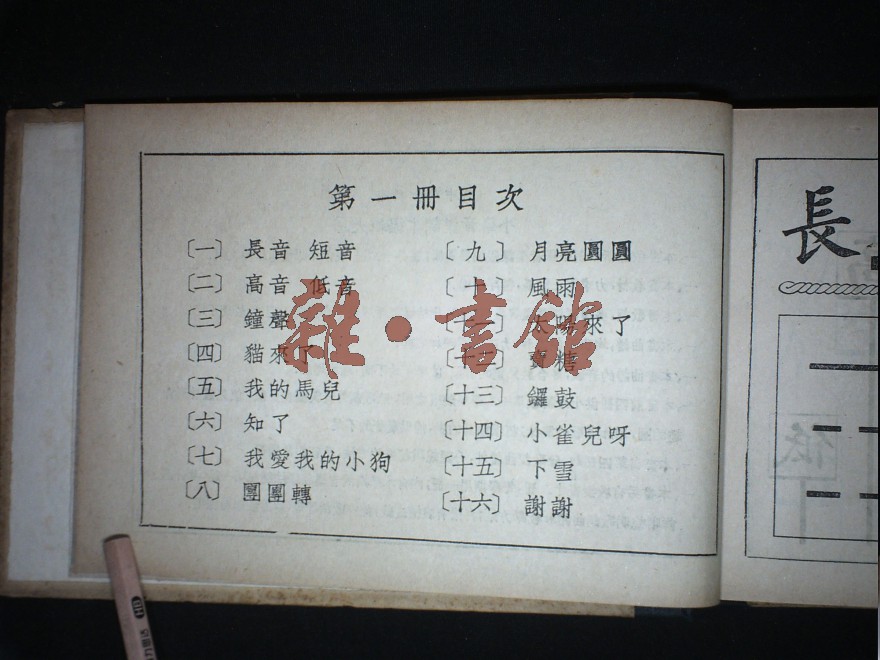 第一冊目次
〔一〕 長音 短音
〔二〕 高音 低音
〔三〕 鐘聲
〔四〕 貓來了
〔五〕 我的馬兒
〔六〕 知了
〔七〕 我愛我的小狗
〔八〕 團團轉
〔九〕 月亮圓圓
〔十〕 風雨
〔十一〕 太陽來了
〔十二〕 賣糖
〔十三〕 鑼鼓
〔十四〕 小雀兒呀
〔十五〕 下雪
〔十六〕 謝謝
雜·書館
長
HB